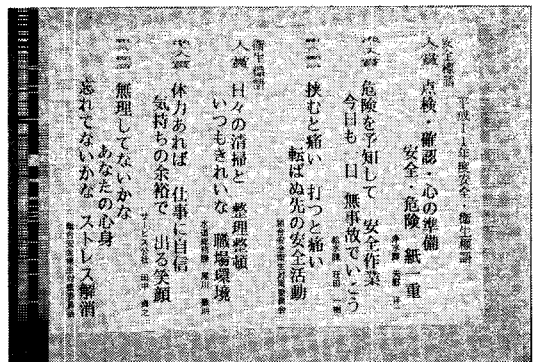 平成11年度安全・衛生標語
安全標語
入賞 点検・確認・心の準備
安全・危険 紙一重
危険を予知して 安全作業
今日も一日 無事故でいこう
挟むと痛い 打つと痛い
転ばぬ先の安全活動
衛生標語
入賞 日々の清掃と 整理整頓
いつもきれいな 職場環境
体力あれば 仕事に自信
気持ちの余裕で 出る笑顔
無理してないかな
あなたの心身
忘れてないかな ストレス解消